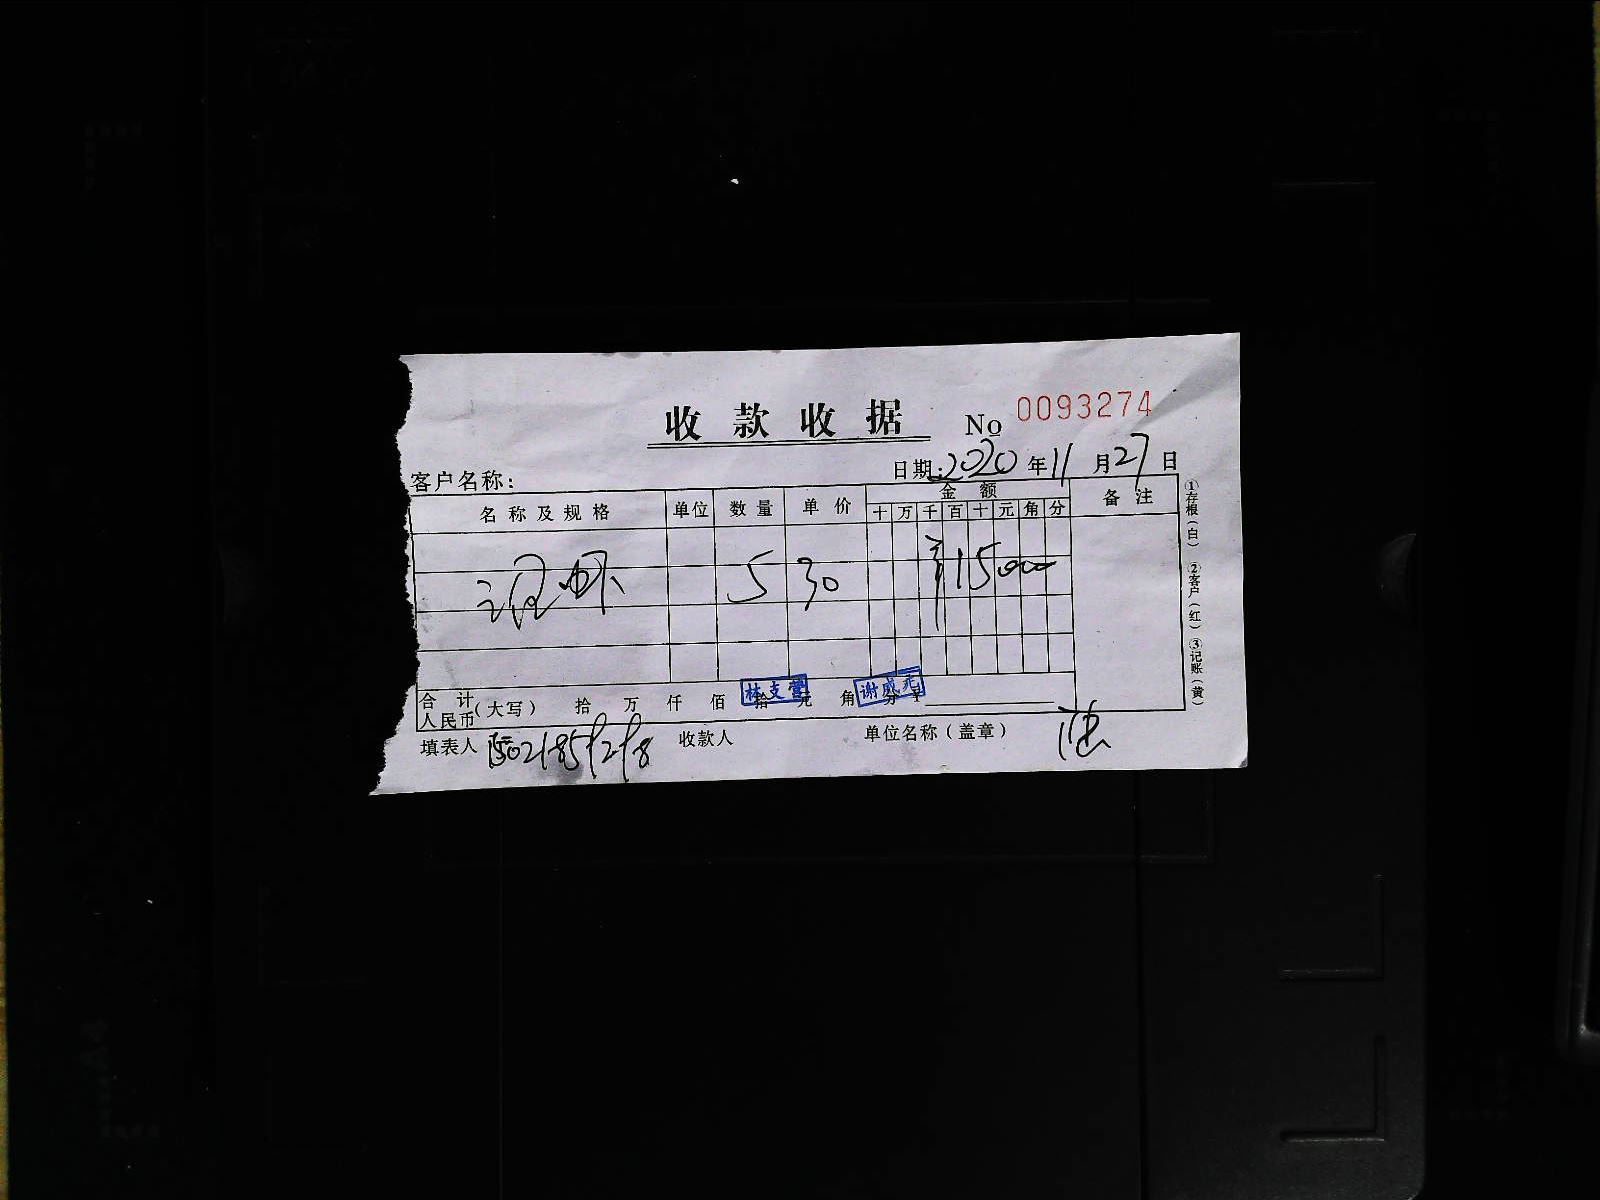 收款收据 No 0093274
日期:2020年11月27日
客户名称:
名称及规格 单位 数量 单价 金额 备注
十 万 千 百 十 元 角 分
5 30 ¥15000
合计人民币(大写) 拾 万 仟 佰 拾 元 角 分 ¥
林支营 谢咸元
填表人 收款人 单位名称(盖章)
①存根(白) ②客户(红) ③记账(黄)